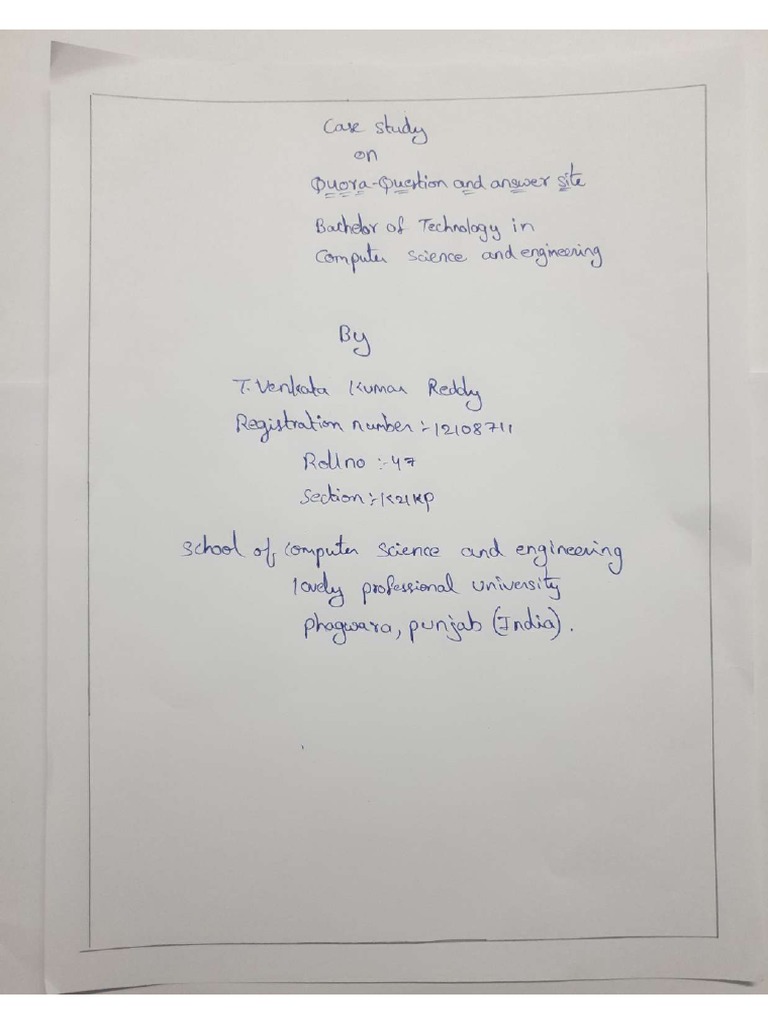 Case study
on
Quora-Question and answer site
Bachelor of Technology in
Computer science and engineering
By
T. Venkata Kumar Reddy
Registration number :- 12108711
Roll no :- 47
Section :- K21KP
School of computer science and engineering
lovely professional university
phagwara, punjab (India).